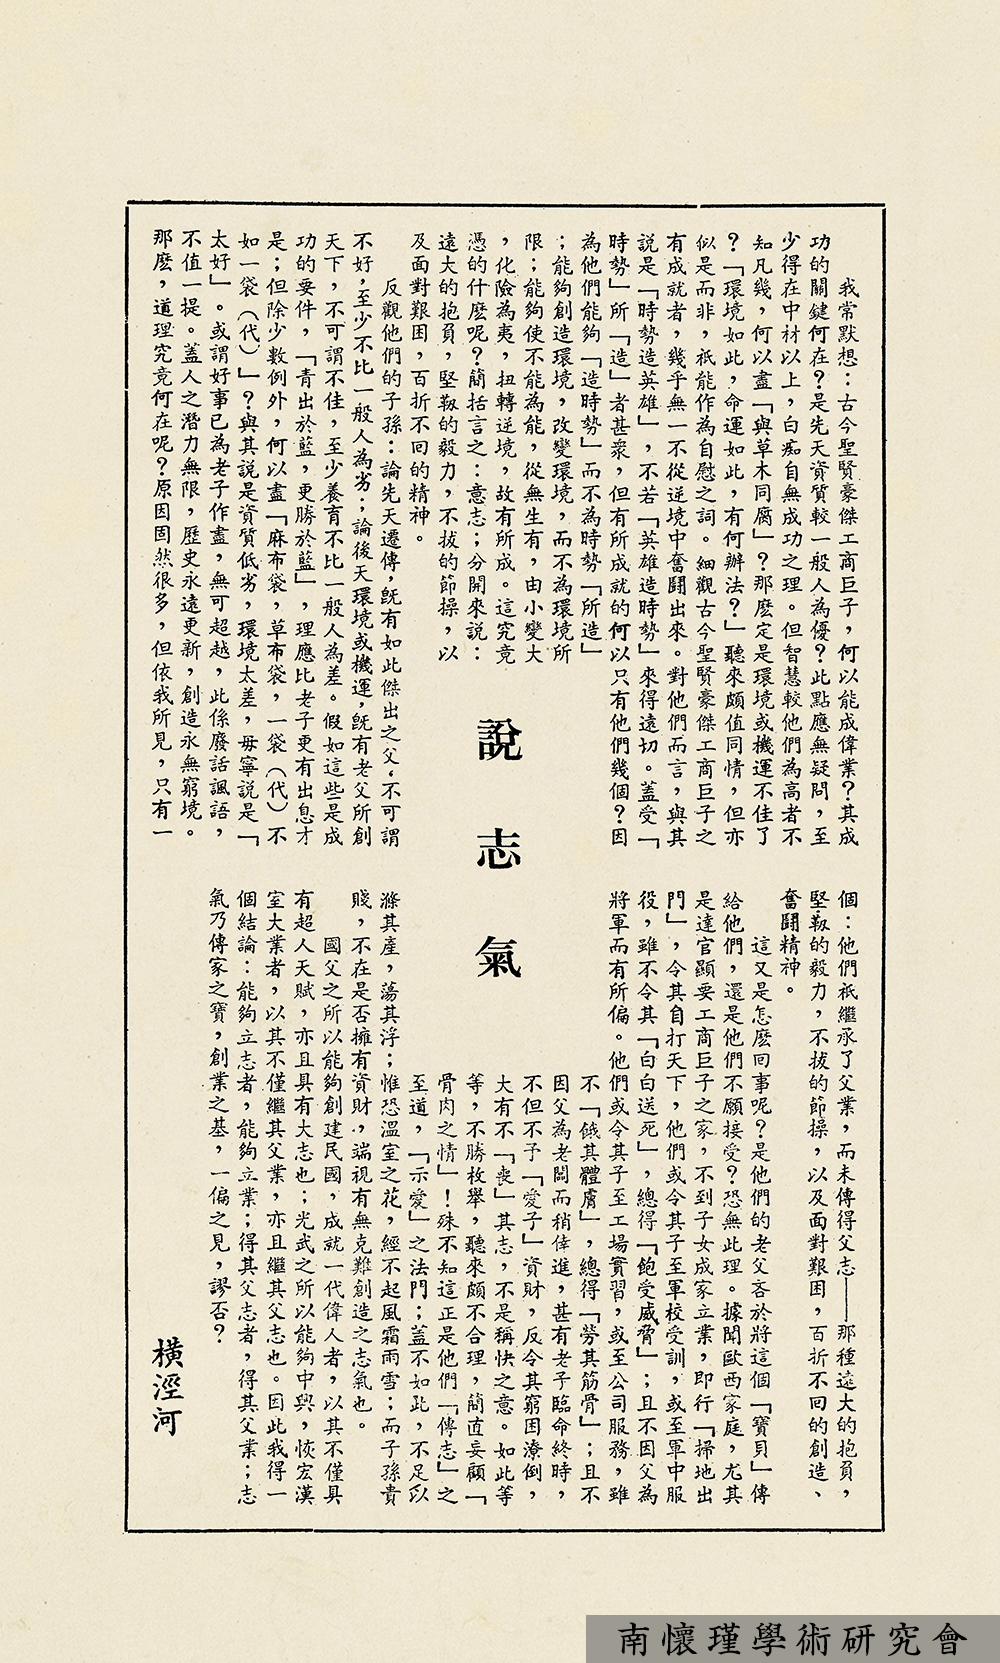 說志氣
我常默想：古今聖賢豪傑工商巨子，何以能成偉業？其成
功的關鍵何在？是先天資質較一般人為優？此點應無疑問，至
少得在中材以上，白痴自無成功之理。但智慧較他們為高者不
知凡幾，何以盡「與草木同腐」？那麽定是環境或機運不佳了
？「環境如此，命運如此，有何辦法？」聽來頗值同情，但亦
似是而非，祇能作為自慰之詞。細觀古今聖賢豪傑工商巨子之
有成就者，幾乎無一不從逆境中奮鬪出來。對他們而言，與其
說是「時勢造英雄」，不若「英雄造時勢」來得適切。蓋受「
時勢」所「造」者甚衆，但有所成就的何以只有他們幾個？因
為他們能夠「造時勢」而不為時勢「所造」
；能夠創造環境，改變環境，而不為環境所
限；能夠使不能為能，從無生有，由小變大
，化險為夷，扭轉逆境，故有所成。這究竟
憑的什麽呢？簡括言之：意志；分開來說：
遠大的抱負，堅靱的毅力，不拔的節操，以
及面對艱困，百折不囘的精神。
反觀他們的子孫：論先天遷傳，既有如此傑出之父，不可謂
不好，至少不比一般人為劣；論後天環境或機運，既有老父所創
天下，不可謂不佳，至少養育不比一般人為差。假如這些是成
功的要件，「青出於藍，更勝於藍」，理應比老子更有出息才
是；但除少數例外，何以盡「麻布袋，草布袋，一袋（代）不
如一袋（代）」？與其說是資質低劣，環境太差，毋寧說是「
太好」。或謂好事已為老子作盡，無可超越，此係廢話諷語，
不值一提。蓋人之潛力無限，歷史永遠更新，創造永無窮境。
那麽，道理究竟何在呢？原因固然很多，但依我所見，只有一
個：他們祇繼承了父業，而未傳得父志——那種遠大的抱負，
堅靱的毅力，不拔的節操，以及面對艱困，百折不囘的創造、
奮鬪精神。
這又是怎麽囘事呢？是他們的老父吝於將這個「寶貝」傳
給他們，還是他們不願接受？恐無此理。據聞歐西家庭，尤其
是達官顯要工商巨子之家，不到子女成家立業，即行「掃地出
門」，令其自打天下，他們或令其子至軍校受訓，或至軍中服
役，雖不令其「白白送死」，總得「飽受威脅」；且不因父為
將軍而有所偏。他們或令其子至工場實習，或至公司服務，雖
不「餓其體膚」，總得「勞其筋骨」；且不
因父為老闆而稍倖進，甚有老子臨命終時，
不但不予「愛子」資財，反令其窮困潦倒，
大有不「喪」其志，不是稱快之意。如此等
等，不勝枚舉，聽來頗不合理，簡直妄顧「
骨肉之情」！殊不知這正是他們「傳志」之
至道，「示愛」之法門；蓋不如此，不足以
滌其產，蕩其浮；惟恐溫室之花，經不起風霜雨雪；而子孫貴
賤，不在是否擁有資財，端視有無克難創造之志氣也。
國父之所以能夠創建民國，成就一代偉人者，以其不僅具
有超人天賦，亦且具有大志也；光武之所以能夠中興，恢宏漢
室大業者，以其不僅繼其父業，亦且繼其父志也。因此我得一
個結論：能夠立志者，能夠立業；得其父志者，得其父業；志
氣乃傳家之寶，創業之基，一偏之見，謬否？
橫涇河
南懷瑾學術研究會